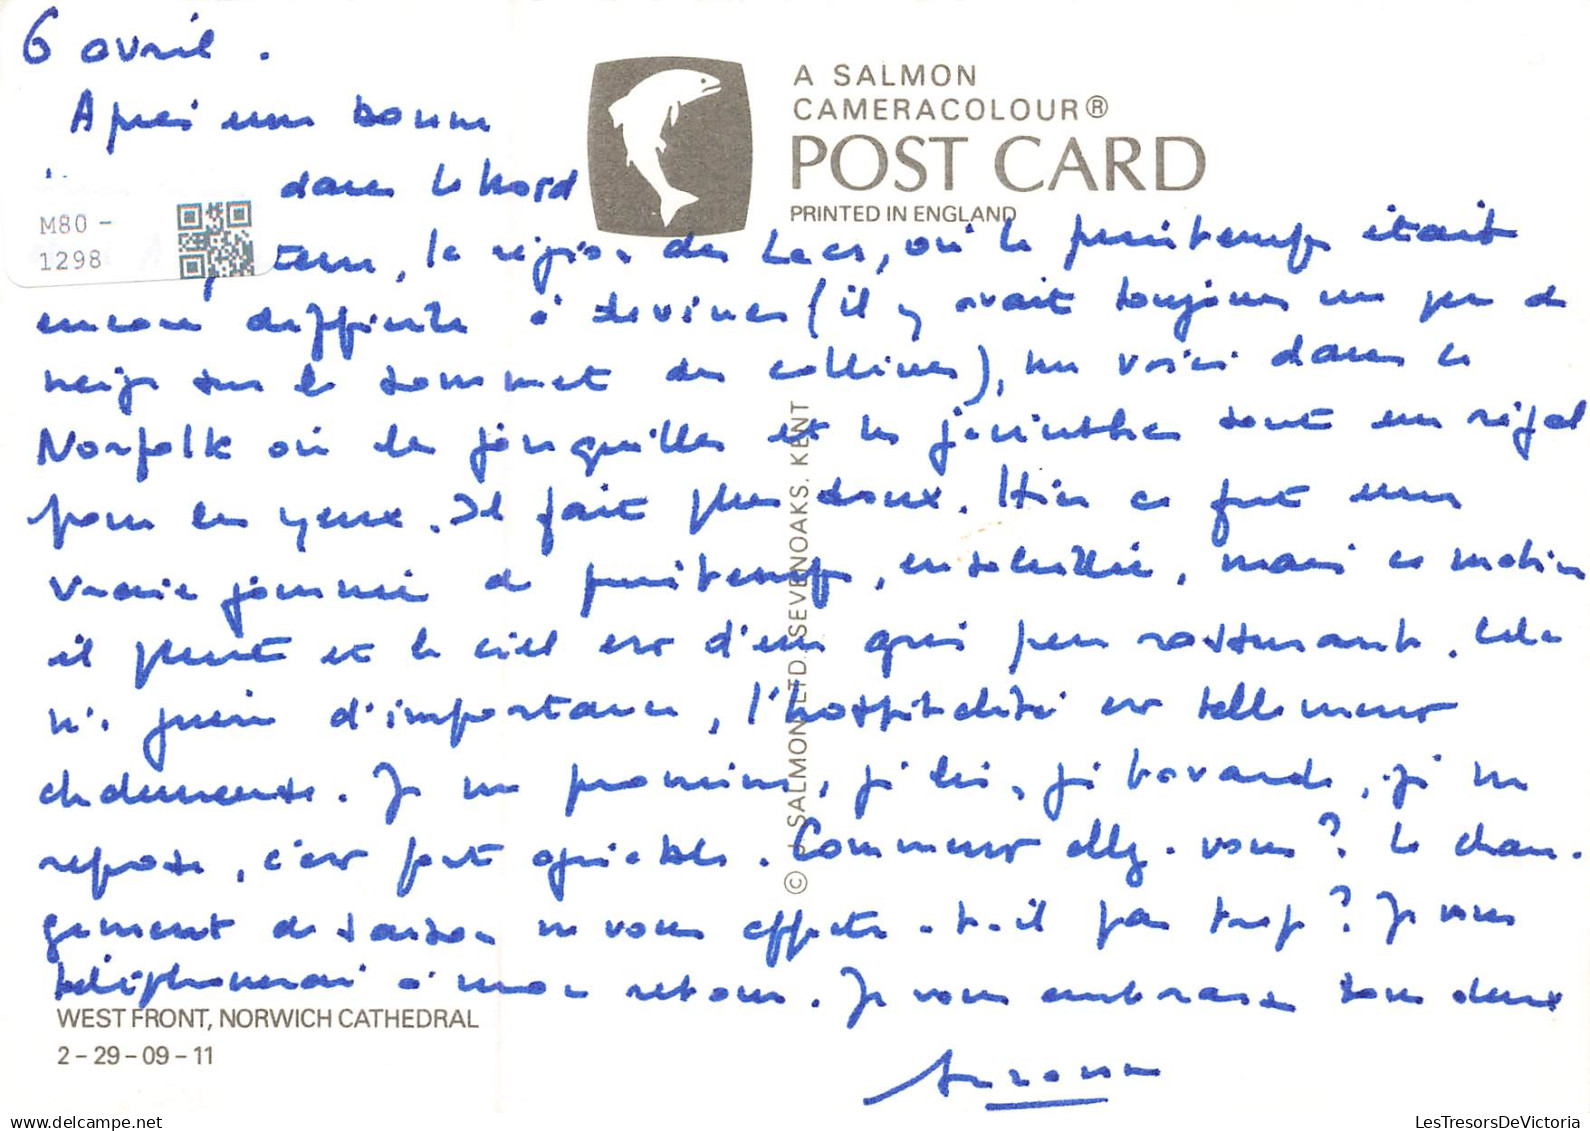 6 avril.
Après une bonne
dans le Nord
A SALMON
CAMERACOLOUR®
POST CARD
PRINTED IN ENGLAND
M80 -
1298
la région des Lacs, où le printemps était
encore difficile à deviner (il y avait toujours un peu de
neige sur le sommet des collines), me voici dans le
Norfolk où les jonquilles et les jacinthes sont un régal
pour les yeux. Il fait plus doux. Hier ce fut une
vraie journée de printemps, ensoleillée, mais ce matin
il pleut et le ciel est d'un gris peu rassurant. Cela
n'a guère d'importance, l'hospitalité est tellement
chaleureuse. Je me promène, je lis, je bavarde, je me
repose, c'est fort agréable. Comment allez-vous? Le chan-
gement de saison ne vous affecte-t-il pas trop? Je vous
téléphonerai à mon retour. Je vous embrasse tous deux
© J. SALMON LTD. SEVENOAKS. KENT
WEST FRONT, NORWICH CATHEDRAL
2-29-09-11
LesTresorsDeVictoria